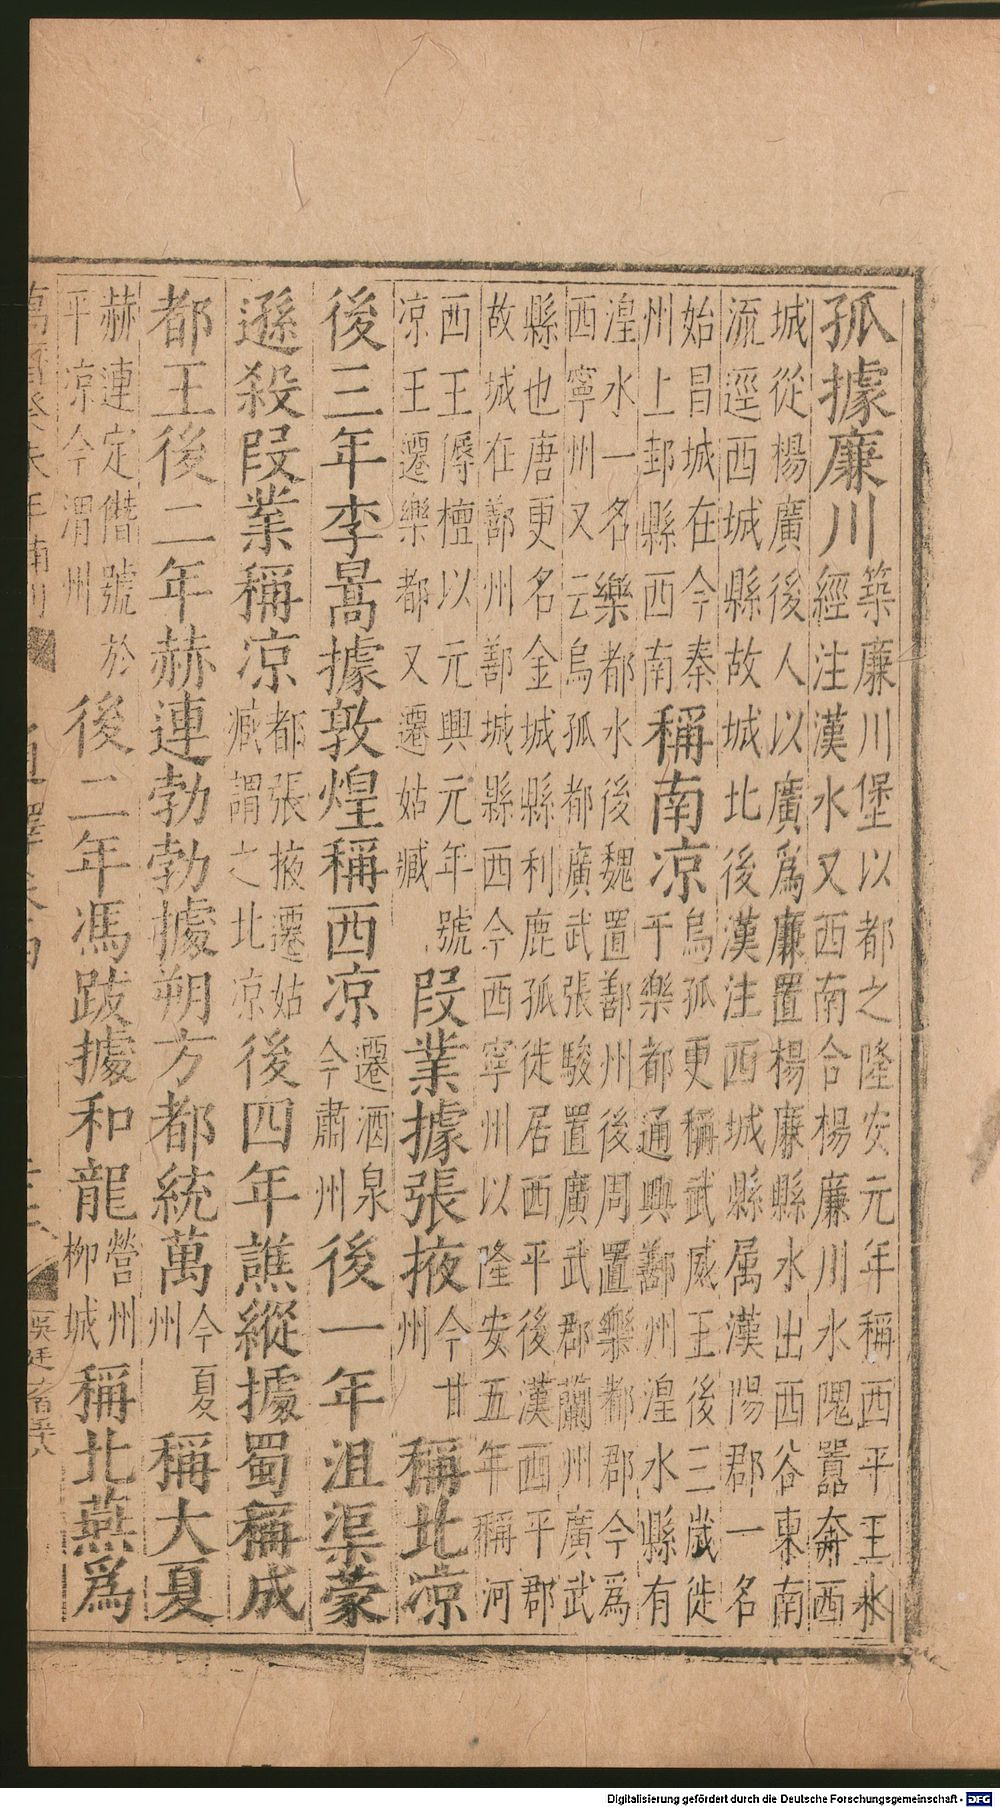 孤據廉川築廉川堡以都之隆安元年稱西平王水
經注漢水又西南合楊廉川水隗囂奔西
城從楊廣後人以廣爲廉置楊廉縣水出西谷東南
流逕西城縣故城北後漢注西城縣属漢陽郡一名
始昌城在今秦
州上邽縣西南稱南凉烏孤更稱武威王後三歲徙
于樂都通典鄯州湟水縣有
湟水一名樂都水後魏置鄯州後周置樂都郡今爲
西寧州又云烏孤都廣武張駿置廣武郡蘭州廣武
縣也唐更名金城縣利鹿孤徙居西平後漢西平郡
故城在鄯州鄯城縣西今西寧州以隆安五年稱河
西王傉檀以元興元年號
凉王遷樂都又遷姑臧段業據張掖今甘
州稱北凉
後三年李暠據敦煌稱西凉遷酒泉
今肅州後一年沮渠蒙
遜殺段業稱凉都張掖遷姑
臧謂之北凉後四年譙縱據蜀稱成
都王後二年赫連勃勃據朔方都統萬今夏
州稱大夏
赫連定僭號於
平凉今渭州後二年馮跋據和龍營州
柳城稱北燕爲
Digitalisierung gefördert durch die Deutsche Forschungsgemeinschaft - DFG